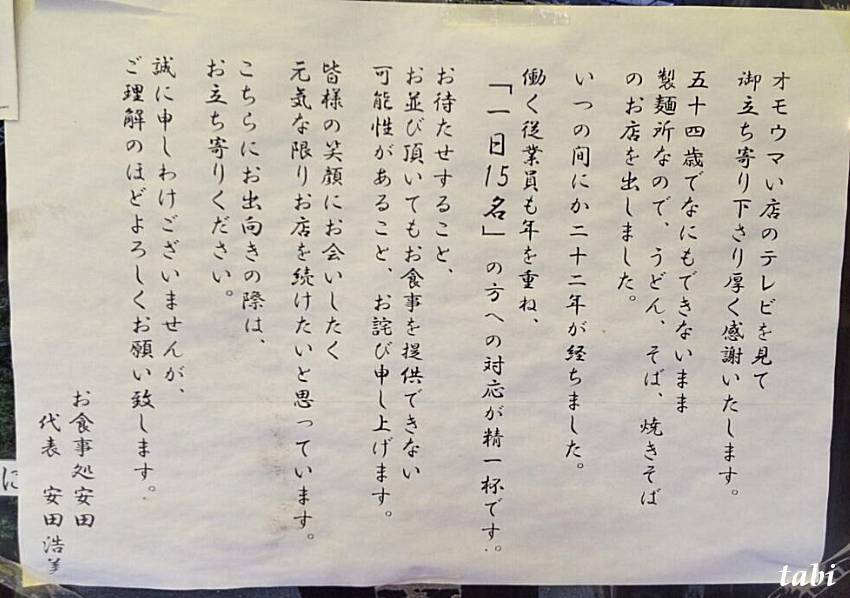 オモウマい店のテレビを見て
御立ち寄り下さり厚く感謝いたします。
五十四歳でなにもできないまま
製麺所なので、うどん、そば、焼きそば
のお店を出しました。
いつの間にか二十二年が経ちました。
働く従業員も年を重ね、
「一日15名」の方への対応が精一杯です。
お待たせすること、
お並び頂いてもお食事を提供できない
可能性があること、お詫び申し上げます。
皆様の笑顔にお会いしたく
元気な限りお店を続けたいと思っています。
こちらにお出向きの際は、
お立ち寄りください。
誠に申しわけございませんが、
ご理解のほどよろしくお願い致します。
お食事処安田
代表 安田浩
に
tabi